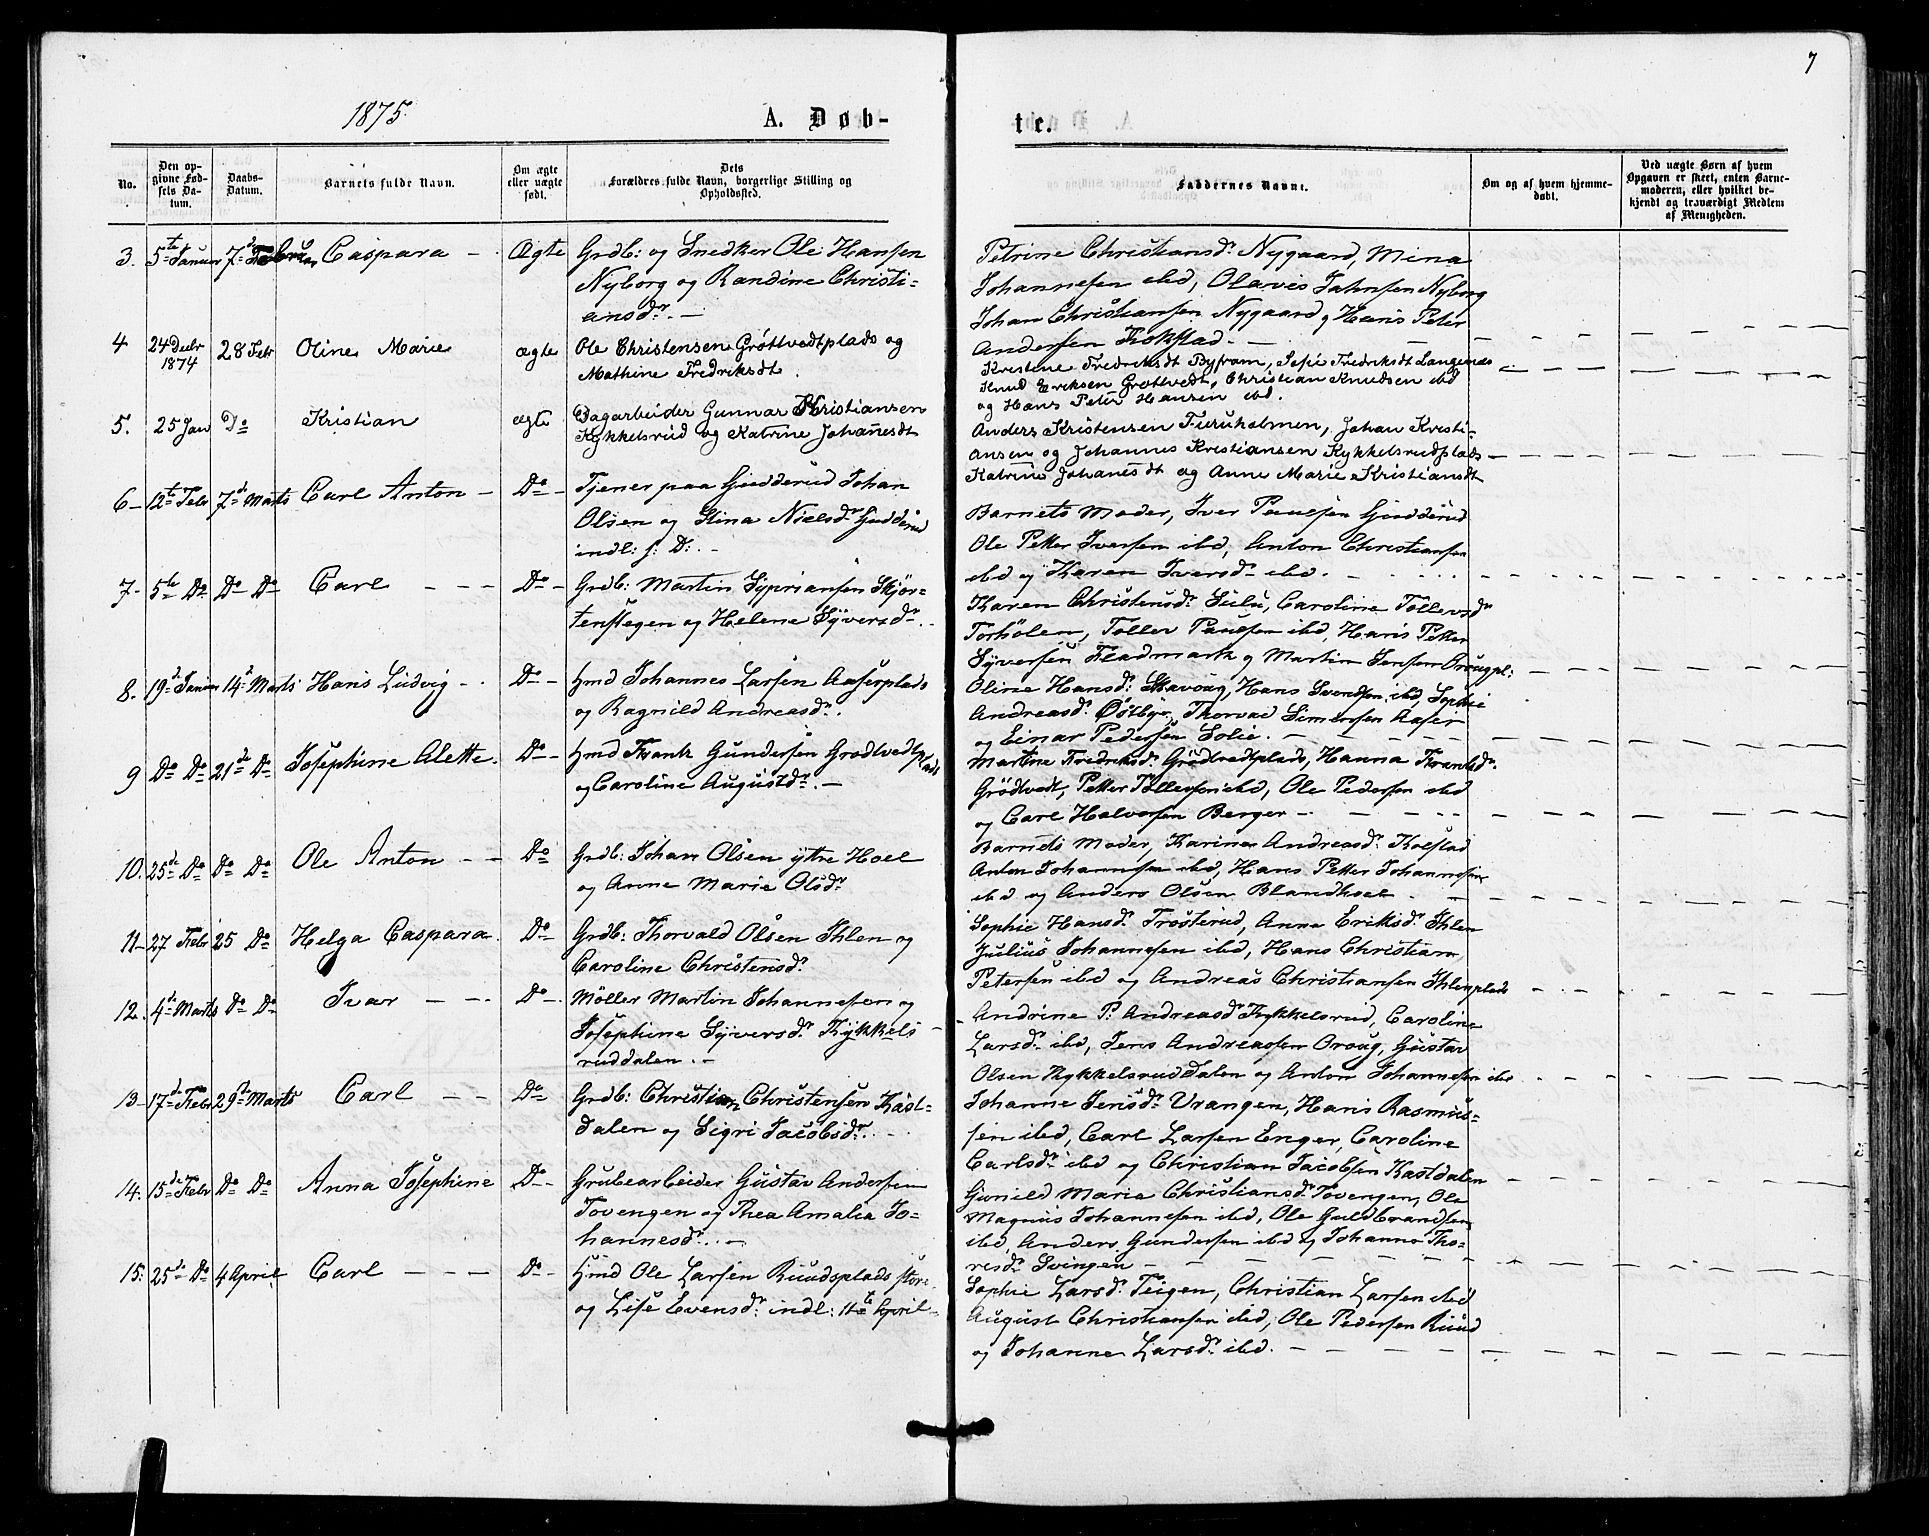 7
1875
A. Døb-
te.
No.
Den op-
givne Fød-
sels Da-
tum.
Daabs-
Datum.
Barnets fulde Navn.
Om ægte
eller uægte
født.
Dets
Forældres fulde Navn, borgerlige Stilling og
Opholdssted.
Faddernes Navne.
Om og af hvem hjemme-
døbt.
Ved uægte Børn af hvem
Opgaven er skeet, enten Barne-
moderen, eller hvilket be-
kjendt og troværdigt Medlem
af Menigheden.
3. 5te Januar 7de Februar Caspara - Ægte Grdb: og Snedker Ole Hansen
Nyborg og Randine Christi=
ansdr. -
Petrine Christiansdr Nygaard, Mina
Johannesen ibd, Olavis Jahnsen Nyborg
Johan Christiansen Nygaard og Hans Peter
Andersen Kokstad. -
4 24 Decbr 1874 28 Febr Oline Marie ægte Ole Christensen Grøttvedtplads og
Mathine Fredriksdt.
Kristine Fredriksdt Byfram, Sefie Fredriksdt Langenæs
Knud Eriksen Grøttvedt, Christian Knudsen ibd
og Hans Peter Hansen ibd.
5. 25 Jan Do Kristian ægte Dagarbeider Gunnar Kristiansen
Kykkelsrud og Katrine Johanesdt
Anders Kristensen Furuholmen, Johan Kristi-
ansen og Johannes Kristiansen Kykkelsrudplads
Katrine Johanesdt og Anne Marie Kristiansdt
6 - 12te Febr 7de Marts Carl Anton - Do - Tjener paa Gudderud Johan
Olsen og Stina Nielsdr Gudderud
indl: f: D: -
Barnets Moder, Iver Paulsen Gudderud
Ole Petter Iversen ibd, Anton Christiansen
ibd og Karen Iversdr ibd. -
7 - 5te Do Do Do Carl - - - Do - Grdb: Martin Sypriansen Skjør=
tenstegen og Helene Syversdr. -
Karen Christensdr Sulu, Caroline Tollevsdr
Torhölen, Toller Paulsen ibd, Hans Petter
Syversen Fladmark og Martin Jensen Ouougpl:
8. 19de Januar 14de Marts Hans Ludvig - Do - Hmd Johannes Larsen Aaserplads
og Ragnild Andreasdr.
Oline Hansdr: Skavoug, Hans Svendsen ibd, Sophie
Andreasdr. Østbye, Thorval Simensen Aaser
og Einar Pedersen Solie. -
9 Do Do 21de Do Josephine Alette. Do - Hmd Frantz Gundersen Grødtvedtplads
og Caroline Augustdr. -
Martine Fredriksdr. Grødtvedtplads, Hanna Frantsdr.
Grödtvedt, Petter Tollefsen ibd, Ole Pedersen ibd
og Carl Halvorsen Berger -
10. 25de Do Do Do Ole Anton - - Do Grdb: Johan Olsen yttre Hoel
og Anne Marie Olsdr
Barnets Moder, Karine Andreasdr. Kolstad
Anton Johannesen ibd, Hans Petter Johannesen
ibd og Anders Olsen Blandhoel -
11 - 27 Febr 25 Do Helga Caspara. Do - Grdb: Thorvald Olsen Ihlen og
Caroline Christensdr
Sophie Hansdr. Trøsterud, Anne Eriksdr. Ihlen
Julius Johannesen ibd, Hans Christian
Petersen ibd og Andreas Christiansen Ihlenplads
12. 4de Marts Do Do Ivar - - Do - Møller Martin Johannesen og
Josephine Syversdr. Kykkels
ruddalen. -
Andrine P: Andreasdr Kykkelsrud, Caroline
Larsdr. ibd, Jens Andreassen Ovoug, Gustav
Olsen Kykkelsruddalen og Anton Johannesen ibd
13 - 17de Febr 29de Marts Carl - - Do Grdb: Christian Christensen Kast=
dalen og Sigri Jacobsdr. -
Johanne Jensdr. Vrangen, Hans Rasmus=
sen ibd, Carl Larsen Enger, Caroline
Carlsdr ibd og Christian Jacobsen Kastdalen
14. 15de Febr Do Do Anna Josephine Do - Grubearbeider Gustav Andersen
Tovengen og Thea Amalia Jo=
hannesdr. -
Gunild Marie Christiansdr. Tovengen, Ole
Magnus Johannesen ibd, Ole Guldbrandsen
ibd, Anders Gundersen ibd og Johanne Tho=
resdr Svingen -
15. 25de Do 4 April Carl - - - Do - Hmd Ole Larsen Ruudsplads store
og Lise Evensdr. indl: 11te April -
Sophie Larsdr. Teigen, Christian Larsen ibd
August Christiansen ibd, Ole Pedersen Ruud
og Johanne Larsdr. ibd. -